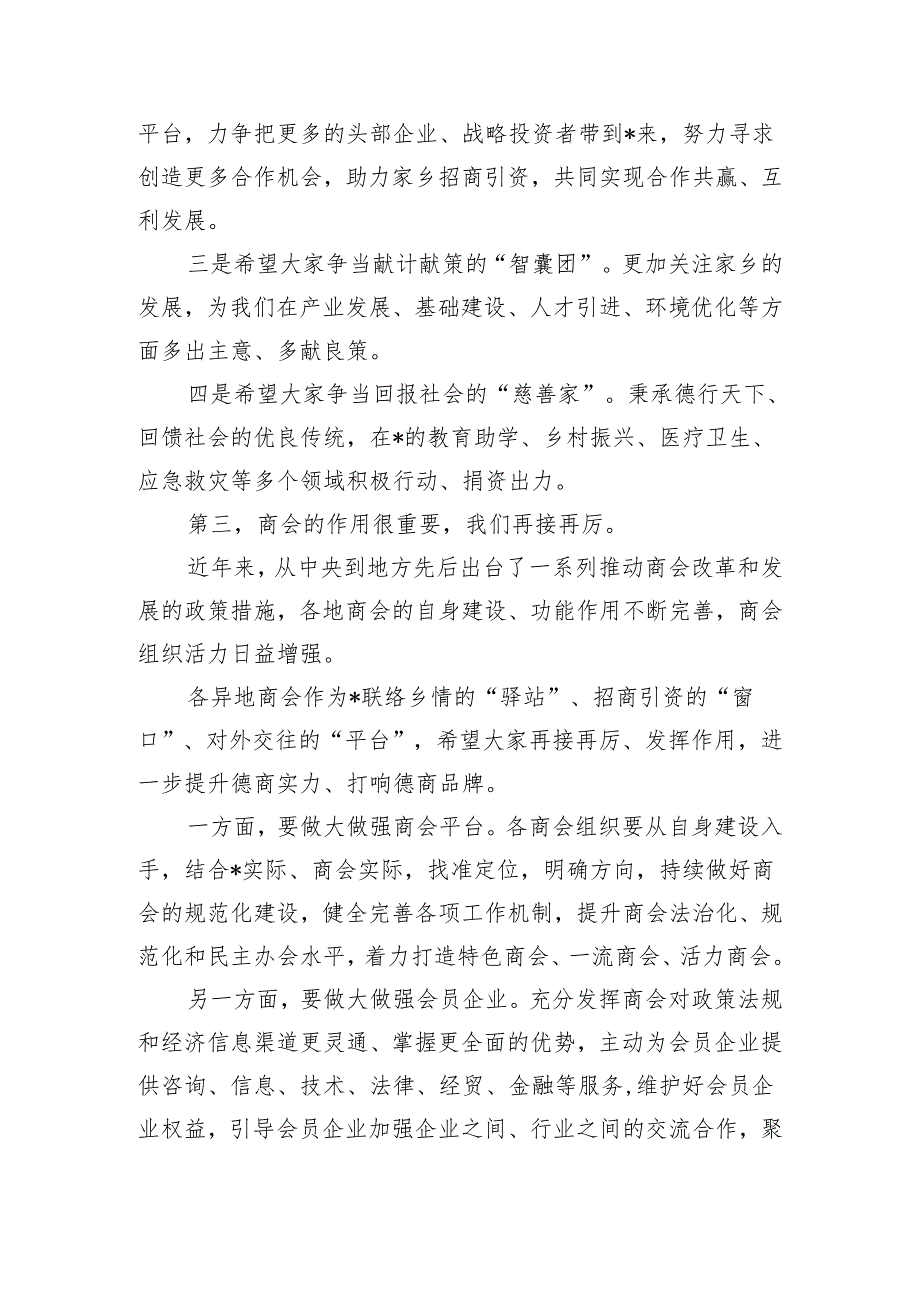 平台，力争把更多的头部企业、战略投资者带到*来，努力寻求
创造更多合作机会，助力家乡招商引资，共同实现合作共赢、互
利发展。
三是希望大家争当献计献策的“智囊团”。更加关注家乡的
发展，为我们在产业发展、基础建设、人才引进、环境优化等方
面多出主意、多献良策。
四是希望大家争当回报社会的“慈善家”。秉承德行天下、
回馈社会的优良传统，在*的教育助学、乡村振兴、医疗卫生、
应急救灾等多个领域积极行动、捐资出力。
第三，商会的作用很重要，我们再接再厉。
近年来，从中央到地方先后出台了一系列推动商会改革和发
展的政策措施，各地商会的自身建设、功能作用不断完善，商会
组织活力日益增强。
各异地商会作为*联络乡情的“驿站”、招商引资的“窗
口”、对外交往的“平台”，希望大家再接再厉、发挥作用，进
一步提升德商实力、打响德商品牌。
一方面，要做大做强商会平台。各商会组织要从自身建设入
手，结合*实际、商会实际，找准定位，明确方向，持续做好商
会的规范化建设，健全完善各项工作机制，提升商会法治化、规
范化和民主办会水平，着力打造特色商会、一流商会、活力商会。
另一方面，要做大做强会员企业。充分发挥商会对政策法规
和经济信息渠道更灵通、掌握更全面的优势，主动为会员企业提
供咨询、信息、技术、法律、经贸、金融等服务,维护好会员企
业权益，引导会员企业加强企业之间、行业之间的交流合作，聚